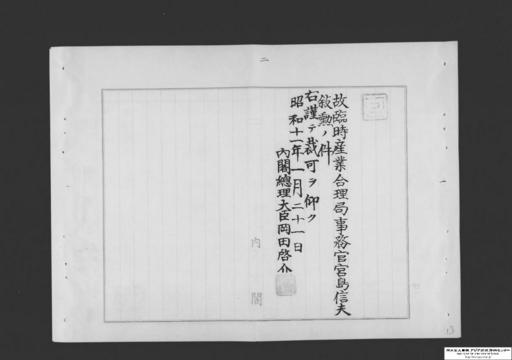 二
故臨時産業合理局事務官宮島信夫
敍勲ノ件
右謹テ裁可ヲ仰ク
昭和十一年一月二十一日
內閣總理大臣岡田啓介
内閣